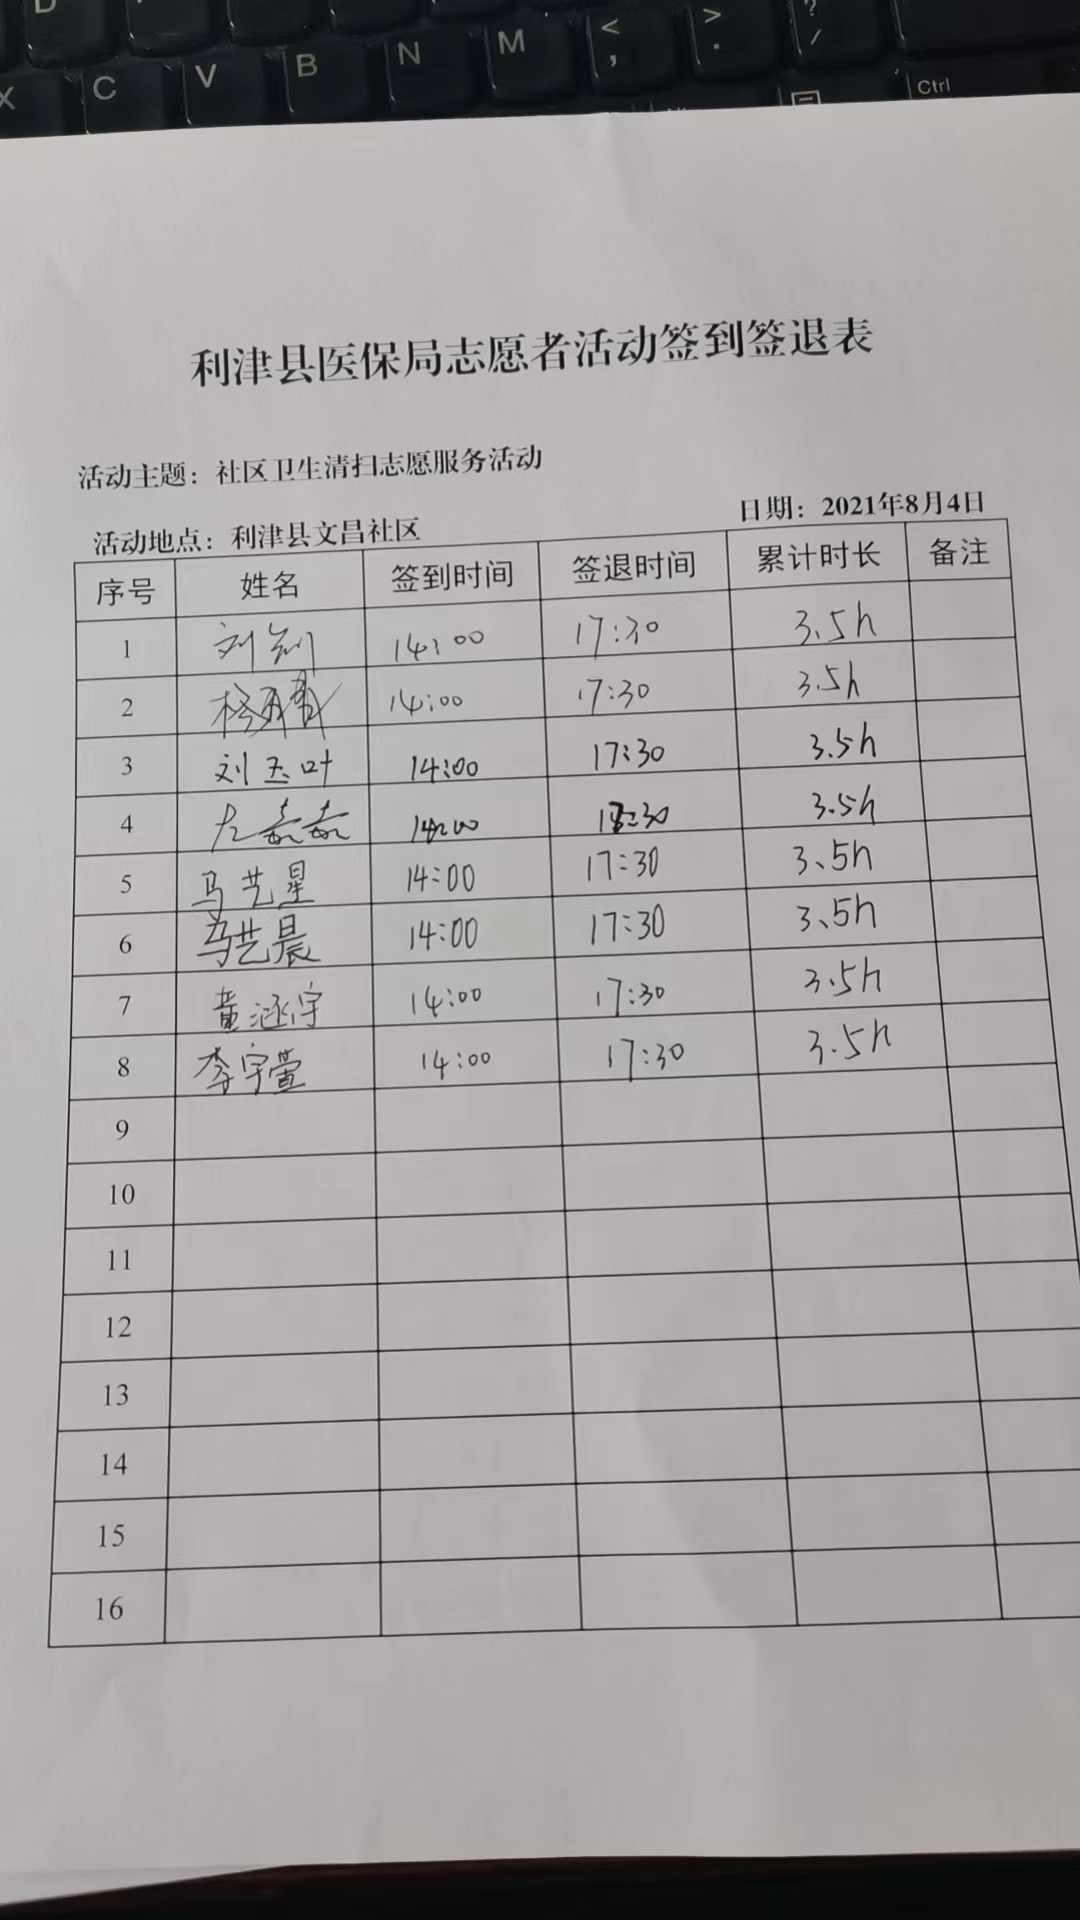 D
X C V B N M < , > . ? /
Ctrl
利津县医保局志愿者活动签到签退表
活动主题：社区卫生清扫志愿服务活动
活动地点：利津县文昌社区 日期：2021年8月4日
序号 姓名 签到时间 签退时间 累计时长 备注
1 刘 14:00 17:30 3.5h
2 杨 14:00 17:30 3.5h
3 刘玉叶 14:00 17:30 3.5h
4 左嘉嘉 14:00 17:30 3.5h
5 马艺星 14:00 17:30 3.5h
6 马艺晨 14:00 17:30 3.5h
7 黄涵宇 14:00 17:30 3.5h
8 李宇萱 14:00 17:30 3.5h
9
10
11
12
13
14
15
16